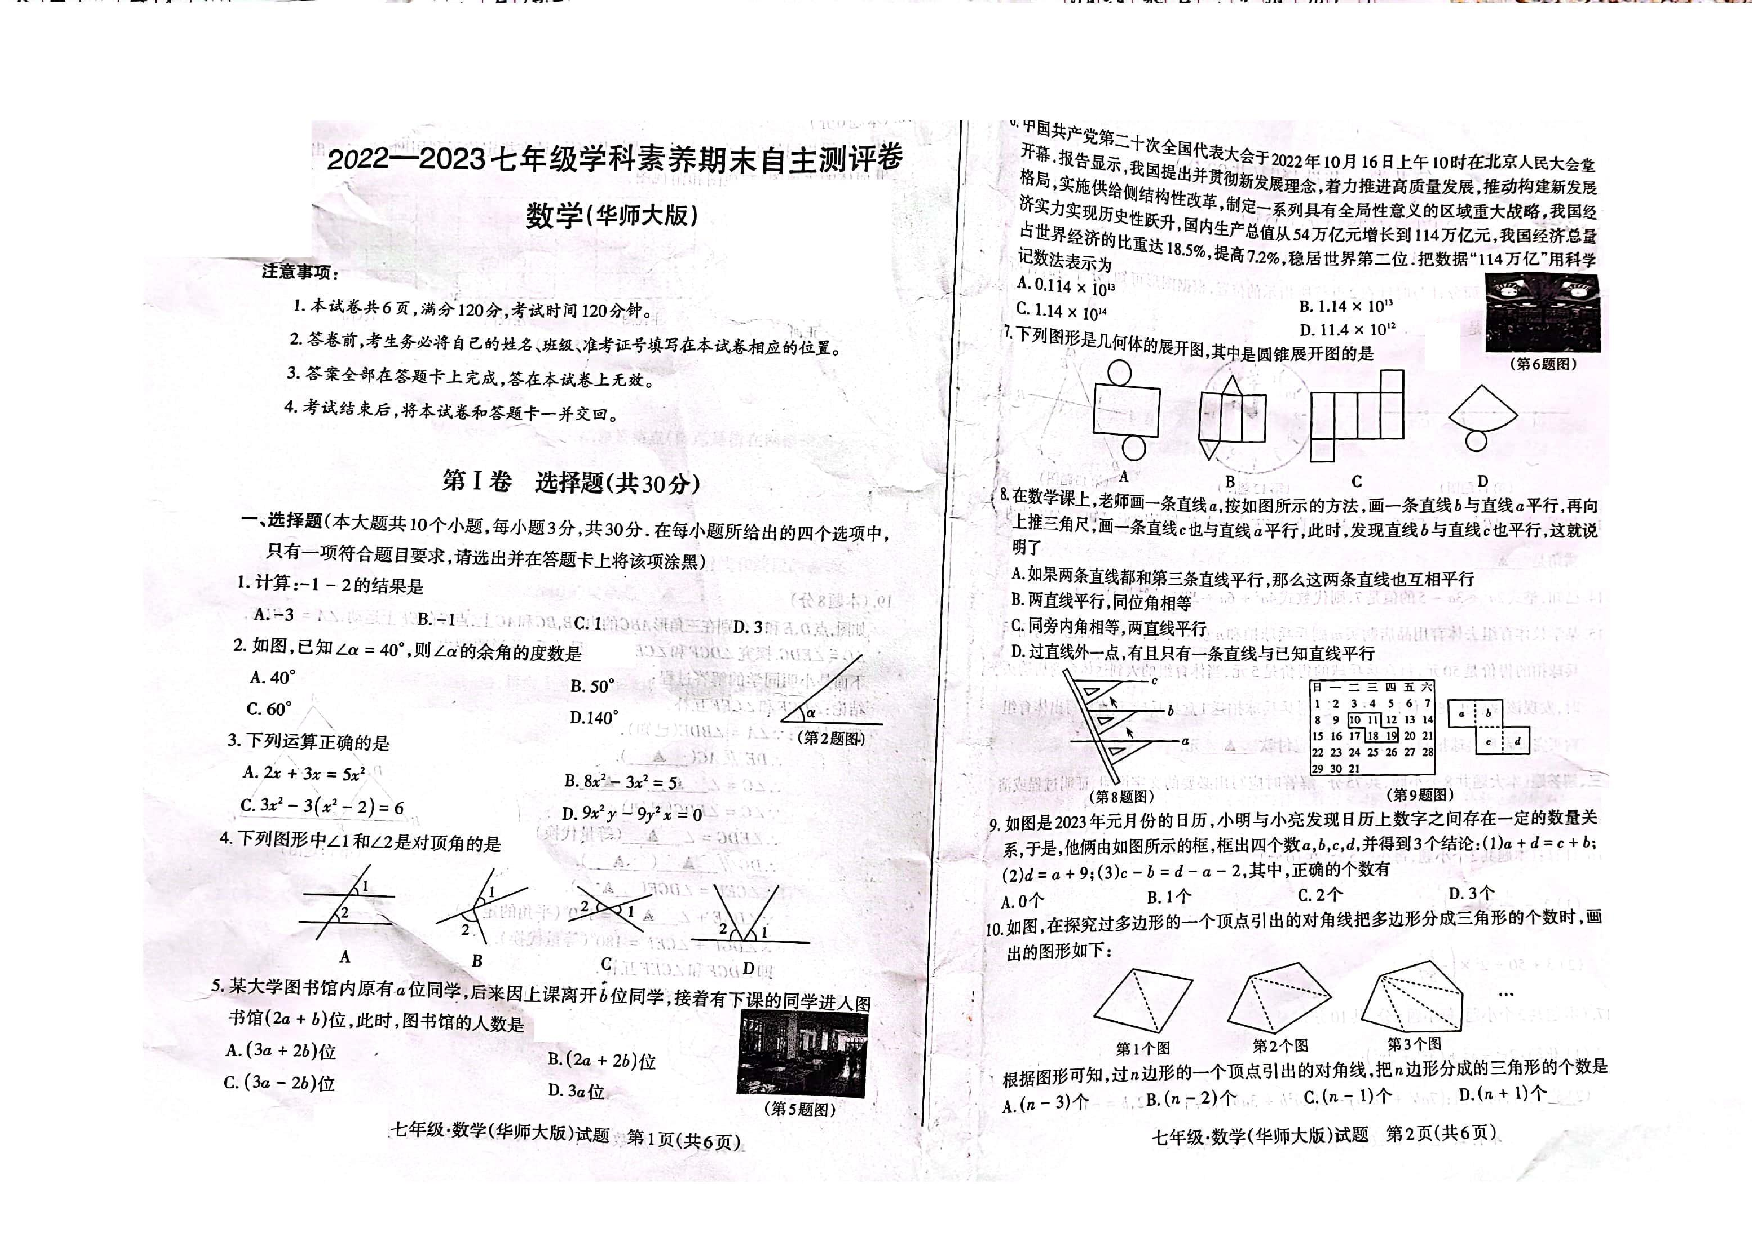 2022—2023七年级学科素养期末自主测评卷
数学(华师大版)
注意事项:
1.本试卷共6页,满分120分,考试时间120分钟。
2.答卷前,考生务必将自己的姓名、班级、准考证号填写在本试卷相应的位置。
3.答案全部在答题卡上完成,答在本试卷上无效。
4.考试结束后,将本试卷和答题卡一并交回。
第Ⅰ卷 选择题(共30分)
一、选择题(本大题共10个小题,每小题3分,共30分.在每小题所给出的四个选项中,
只有一项符合题目要求,请选出并在答题卡上将该项涂黑)
1.计算:-1-2的结果是
A.-3 B.-1 C.1 D.3
2.如图,已知∠α=40°,则∠α的余角的度数是
A.40° B.50°
C.60° D.140°
α
(第2题图)
3.下列运算正确的是
A.2x+3x=5x² B.8x²-3x²=5
C.3x²-3(x²-2)=6 D.9x²y-9y²x=0
4.下列图形中∠1和∠2是对顶角的是
1 2 1 2 2 1 2 1
A B C D
5.某大学图书馆内原有a位同学,后来因上课离开b位同学,接着有下课的同学进入图
书馆(2a+b)位,此时,图书馆的人数是
A.(3a+2b)位 B.(2a+2b)位
C.(3a-2b)位 D.3a位
(第5题图)
七年级·数学(华师大版)试题 第1页(共6页)
6.中国共产党第二十次全国代表大会于2022年10月16日上午10时在北京人民大会堂
开幕.报告显示,我国提出并贯彻新发展理念,着力推进高质量发展,推动构建新发展
格局,实施供给侧结构性改革,制定一系列具有全局性意义的区域重大战略,我国经
济实力实现历史性跃升,国内生产总值从54万亿元增长到114万亿元,我国经济总量
占世界经济的比重达18.5%,提高7.2%,稳居世界第二位.把数据“114万亿”用科学
记数法表示为
A.0.114×10¹³ B.1.14×10¹³
C.1.14×10¹⁴ D.11.4×10¹²
(第6题图)
7.下列图形是几何体的展开图,其中是圆锥展开图的是
A B C D
8.在数学课上,老师画一条直线a,按如图所示的方法,画一条直线b与直线a平行,再向
上推三角尺,画一条直线c也与直线a平行,此时,发现直线b与直线c也平行,这就说
明了
A.如果两条直线都和第三条直线平行,那么这两条直线也互相平行
B.两直线平行,同位角相等
C.同旁内角相等,两直线平行
D.过直线外一点,有且只有一条直线与已知直线平行
c
b
a
(第8题图)
日 一 二 三 四 五 六
1 2 3 4 5 6 7
8 9 10 11 12 13 14
15 16 17 18 19 20 21
22 23 24 25 26 27 28
29 30 21
a b
c d
(第9题图)
9.如图是2023年元月份的日历,小明与小亮发现日历上数字之间存在一定的数量关
系,于是,他俩由如图所示的框,框出四个数a,b,c,d,并得到3个结论:(1)a+d=c+b;
(2)d=a+9;(3)c-b=d-a-2,其中,正确的个数有
A.0个 B.1个 C.2个 D.3个
10.如图,在探究过多边形的一个顶点引出的对角线把多边形分成三角形的个数时,画
出的图形如下:
…
第1个图 第2个图 第3个图
根据图形可知,过n边形的一个顶点引出的对角线,把n边形分成的三角形的个数是
A.(n-3)个 B.(n-2)个 C.(n-1)个 D.(n+1)个
七年级·数学(华师大版)试题 第2页(共6页)